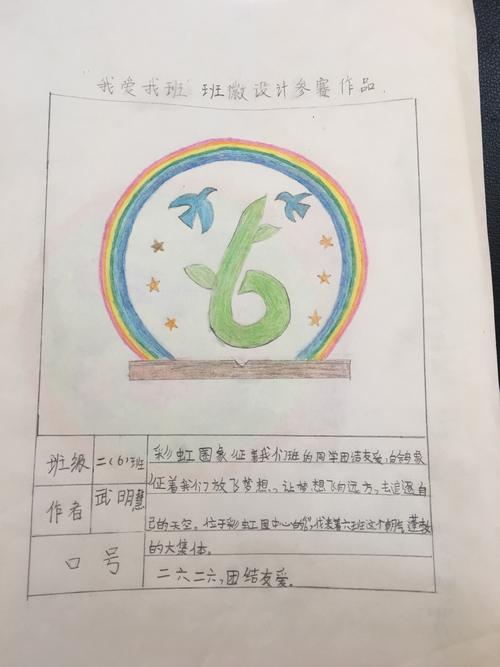 我爱我班 班徽设计参赛作品
6
班级 二(6)班
作者 武明慧
彩虹圈象征着我们班的同学团结友爱,白鸽象
征着我们放飞梦想、让梦想飞向远方,去追逐自
己的天空。位于彩虹圈中心的"6",代表着六班这个朝气蓬勃
的大集体。
口号 二六二六,团结友爱.